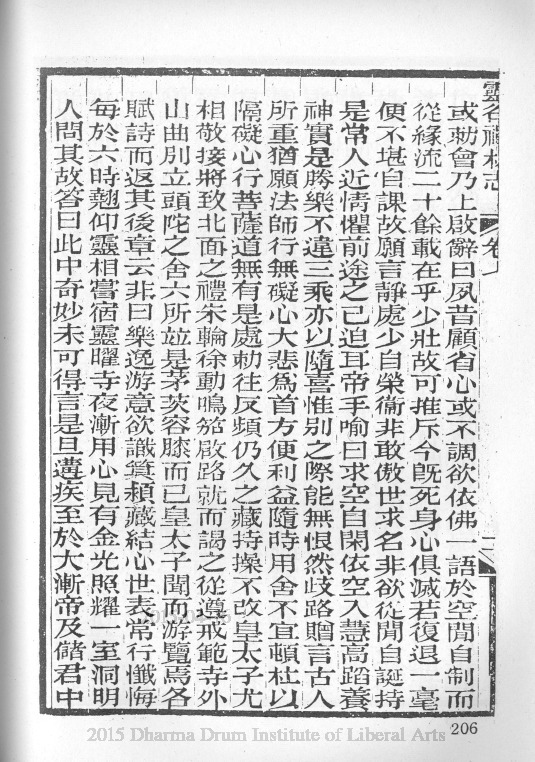 靈谷禪林志
卷
或勅會乃上啟辭曰夙昔顧省心或不調欲依佛一語於空閒自制而
從緣流二十餘載在乎少壯故可推斥今旣死身心俱滅若復退一毫
便不堪自課故願言靜處少自榮衞非敢傲世求名非欲從閒自誕持
是常人近情懼前途之已迫耳帝手喻曰求空自閑依空入慧高蹈養
神實是勝樂不違三乘亦以隨喜惟別之際能無恨然歧路贈言古人
所重猶願法師行無礙心大悲爲首方便利益隨時用舍不宜頓杜以
隔礙心行菩薩道無有是處勅往反頻仍久之藏持操不改皇太子尤
相敬接將致北面之禮朱輪徐動鳴笳啟路就而謁之從遵戒範寺外
山曲別立頭陀之舍六所竝是茅茨容膝而已皇太子聞而游覽焉各
賦詩而返其後章云非曰樂逸游意欲識箕潁藏結心世表常行懺悔
每於六時翹仰靈相嘗宿靈曜寺夜漸用心見有金光照耀一室洞明
人問其故答曰此中奇妙未可得言是旦遘疾至於大漸帝及儲君中
206
2015 Dharma Drum Institute of Liberal Arts